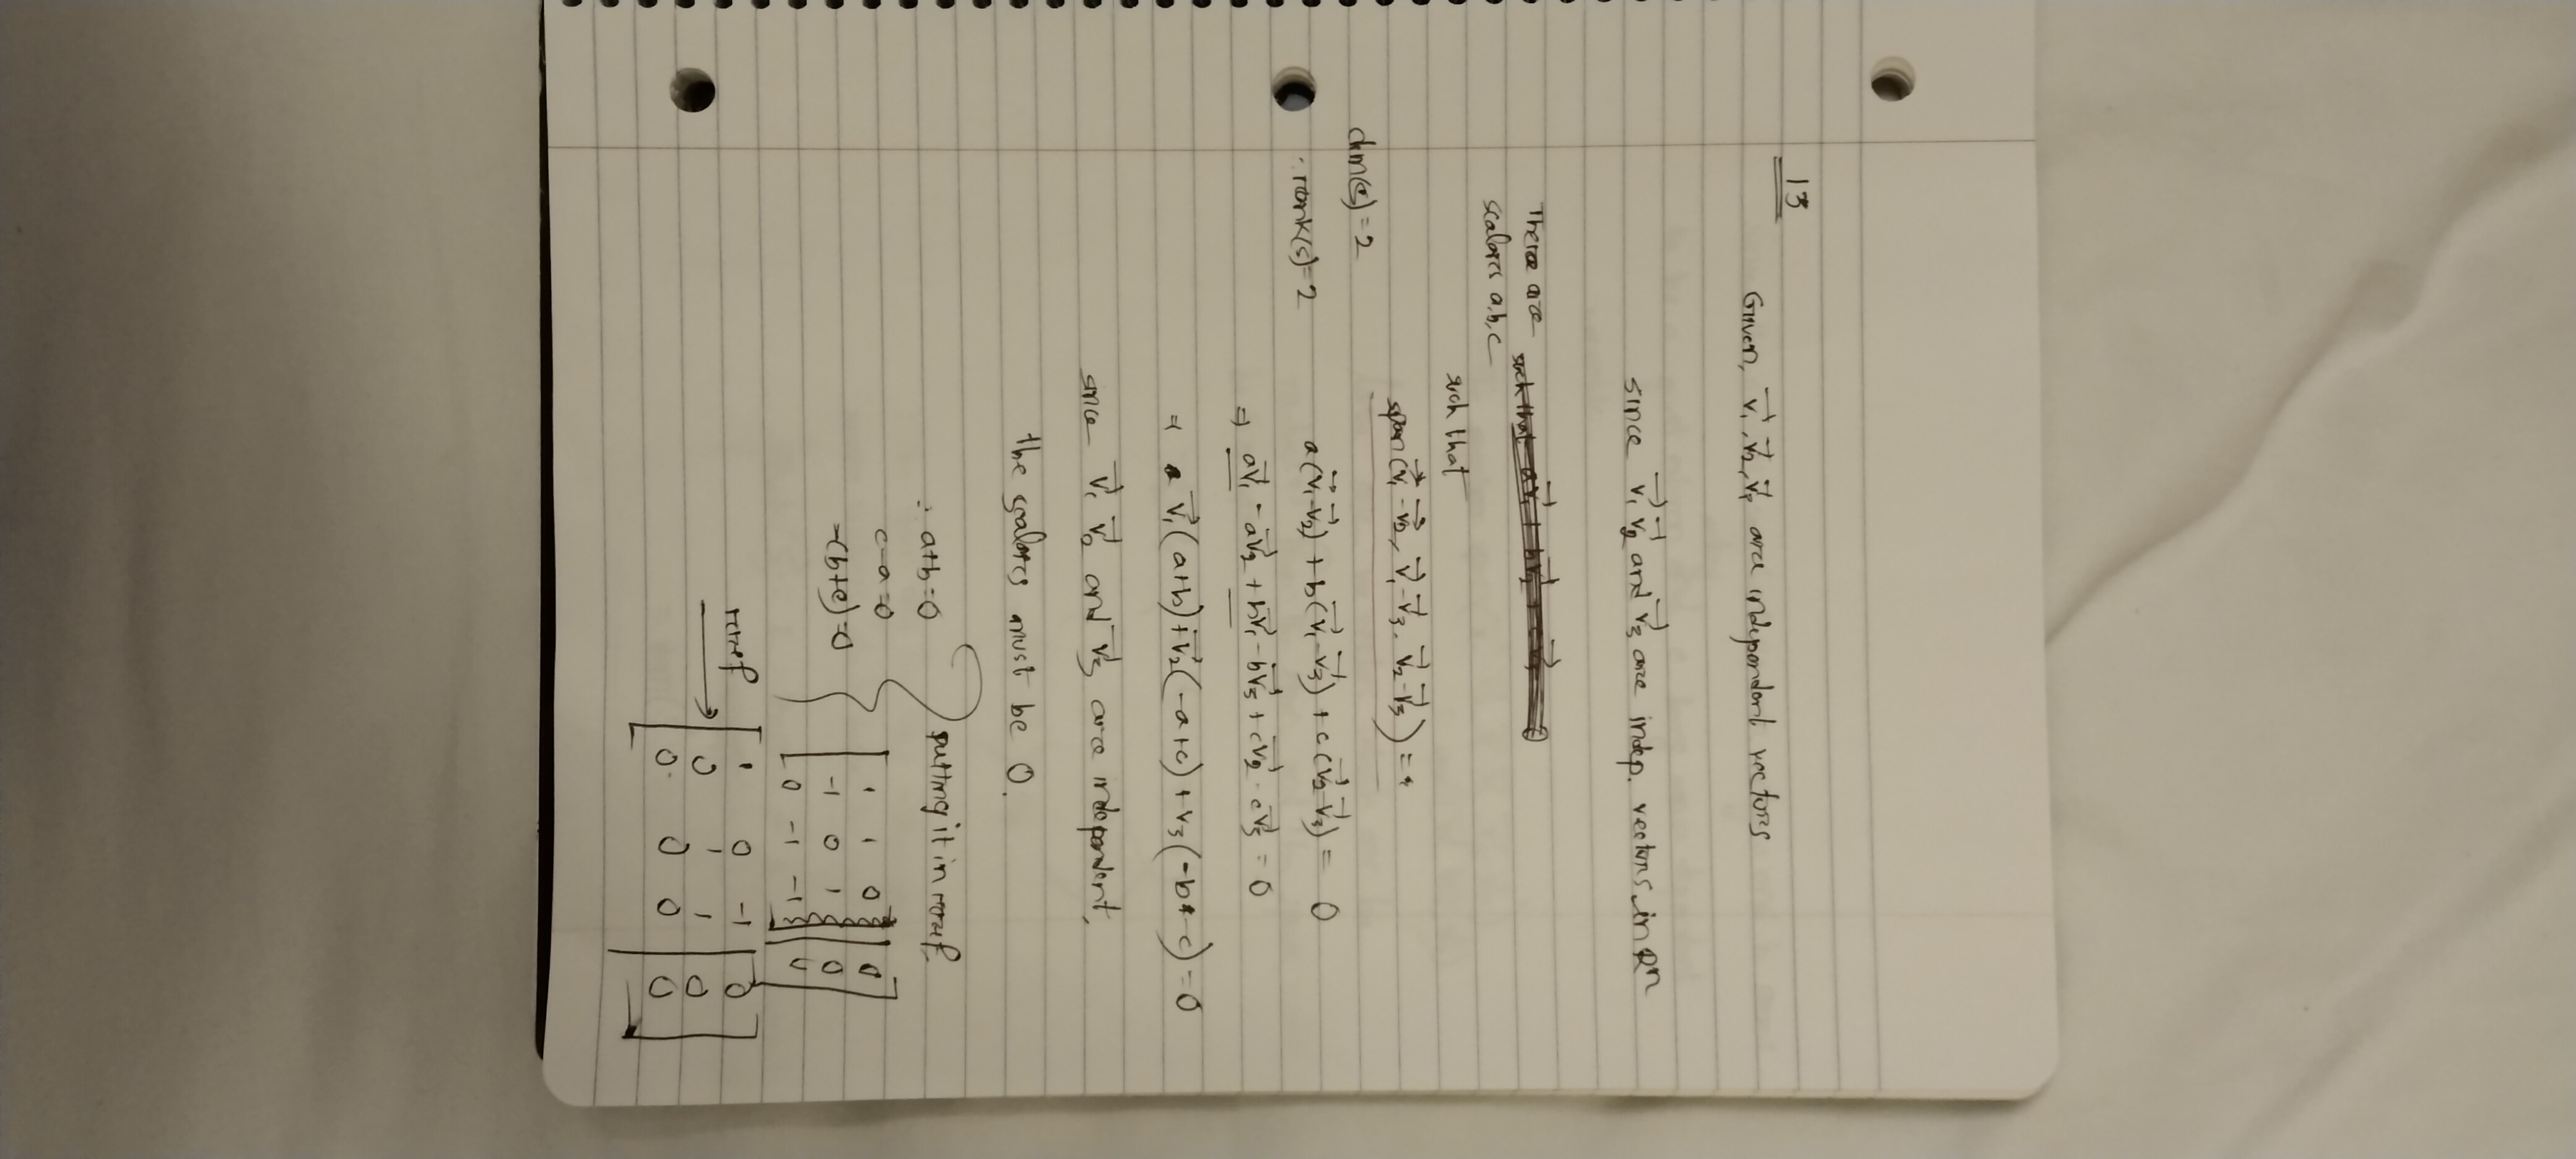 13
Given, v₁, v₂, v₃ are independent vectors
since v₁ v₂ and v₃ are indep. vectors in Rⁿ
There are
scalars a,b,c
such that
span(v₁-v₂, v₁-v₃, v₂-v₃) =
dim(s)=2
rank(s)=2
a(v₁-v₂) + b(v₁-v₃) + c(v₂-v₃) = 0
⇒ av₁ - av₂ + bv₁ - bv₃ + cv₂ - cv₃ = 0
⇒ v₁(a+b) + v₂(-a+c) + v₃(-b-c) = 0
since v₁ v₂ and v₃ are independent,
the scalars must be 0.
∴ a+b=0 putting it in rref
c-a=0
-(b+c)=0
1 1 0 | 0
-1 0 1 | 0
0 -1 -1 | 0
rref
1 0 -1 | 0
0 1 1 | 0
0 0 0 | 0